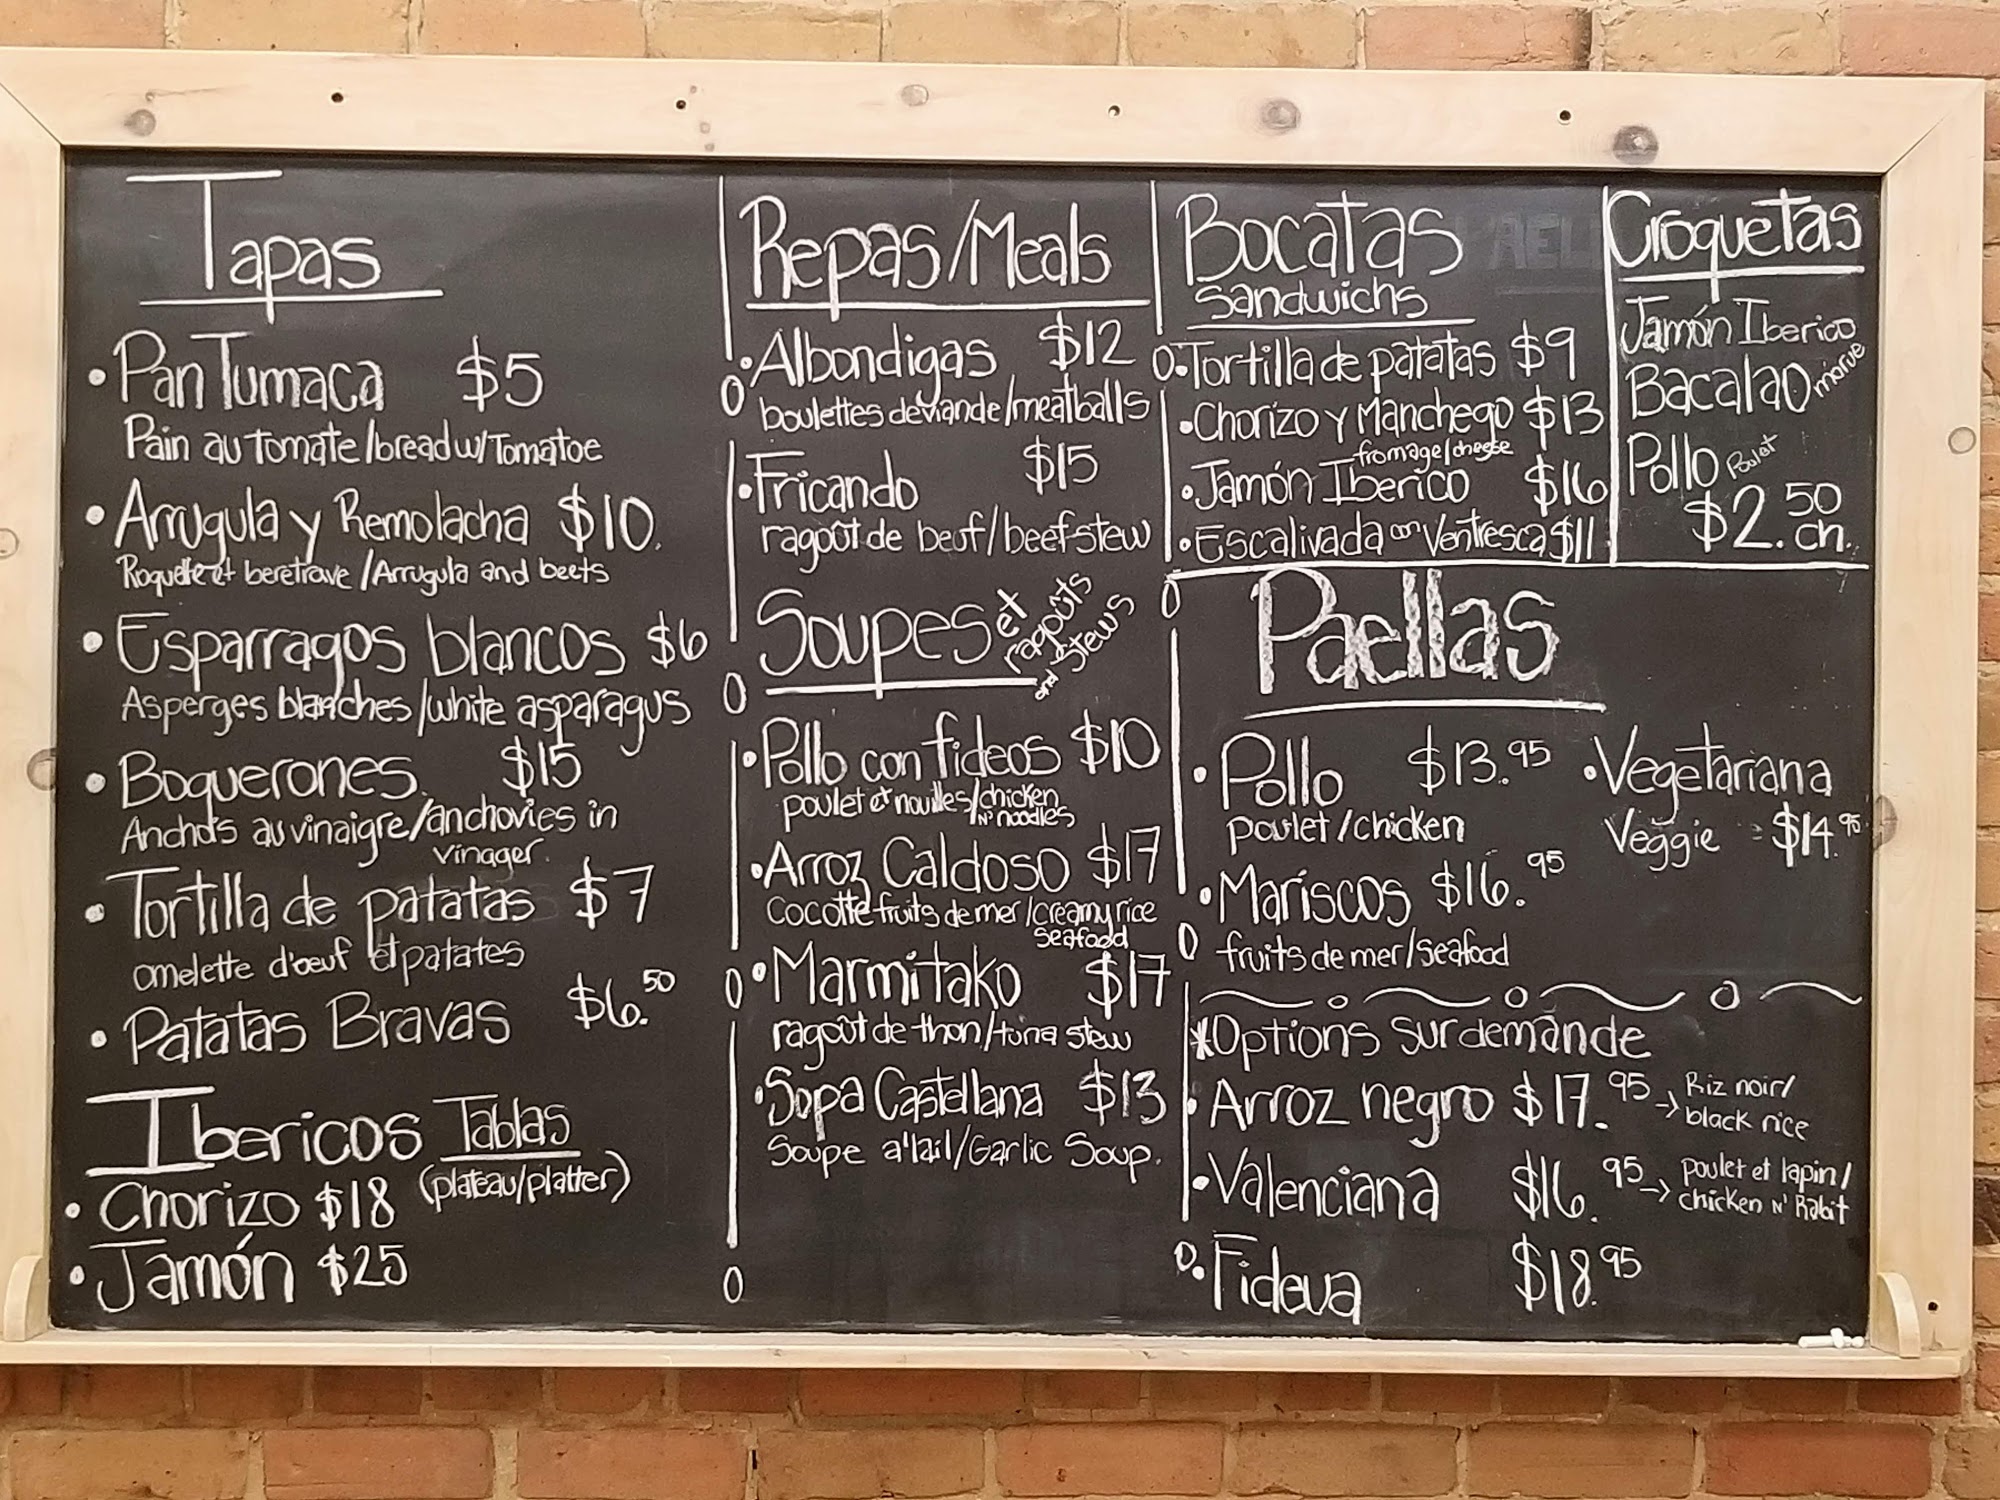 Tapas
• Pan Tumaca $5
Pain au tomate/bread w/Tomatoe
• Arrugula y Remolacha $10.
Roquette et beretrave/Arrugula and beets
• Esparragos blancos $6
Asperges blanches/white asparagus
• Boquerones $15
Anchois au vinaigre/anchovies in
vinager.
• Tortilla de patatas $7
omelette d'oeuf et patates
• Patatas Bravas $6.50
Ibericos Tablas
(plateau/platter)
• Chorizo $18
• Jamón $25
Repas/Meals
• Albondigas $12
boulettes de viande/meatballs
• Fricando $15
ragoût de beuf/beef stew
Soupes et ragoûts
and stews
• Pollo con fideos $10
poulet et nouilles/chicken
N' noodles
• Arroz Caldoso $17
Cocotte fruits de mer/creamy rice
seafood
• Marmitako $17
ragoût de thon/tuna stew
• Sopa Castellana $13
Soupe a'lail/Garlic Soup.
Bocatas
sandwichs
• Tortilla de patatas $9
• Chorizo y Manchego $13
fromage/cheese
• Jamón Iberico $16
• Escalivada con Ventresca $11
Croquetas
Jamón Iberico
Bacalao morue
Pollo Poulet
$2.50 ch.
Paellas
• Pollo $13.95
poulet/chicken
• Mariscos $16.95
fruits de mer/seafood
• Vegetariana
Veggie $14.95
*Options sur demande
• Arroz negro $17.95 → Riz noir/
black rice
• Valenciana $16.95 → poulet et lapin/
chicken N' Rabit
• Fideua $18.95